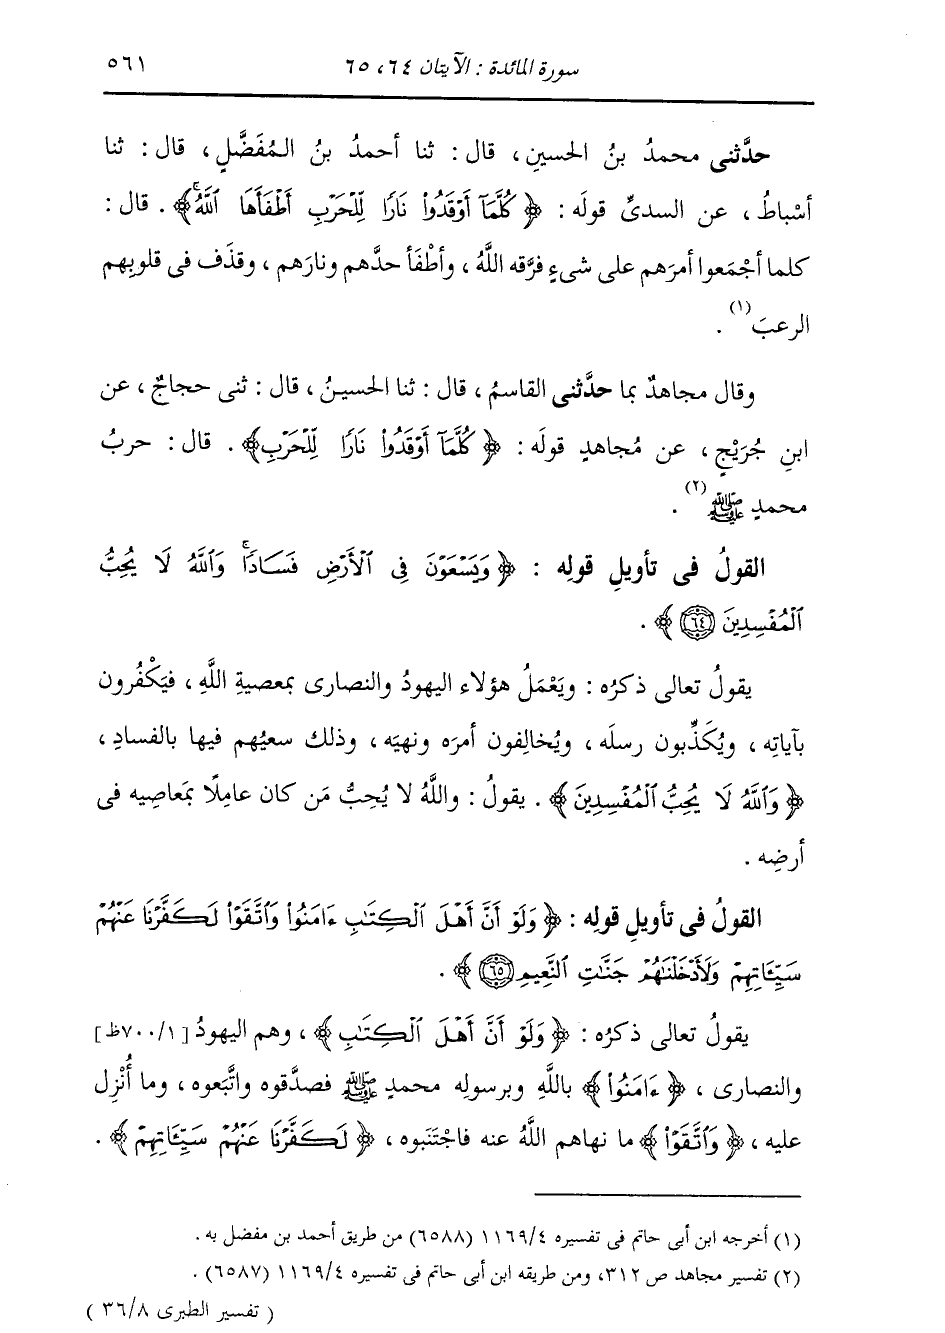 سورة المائدة : الآيتان ٦٤ ، ٦٥ ٥٦١
حدَّثنى محمدُ بنُ الحسينِ ، قال : ثنا أحمدُ بنُ المُفَضَّلِ ، قال : ثنا
أسْباطُ ، عن السدىِّ قولَه : ﴿ كُلَّمَآ أَوْقَدُوا۟ نَارًا لِّلْحَرْبِ أَطْفَأَهَا ٱللَّهُ ۚ ﴾ . قال :
كلما أجْمَعوا أمرَهم على شىءٍ فرَّقه اللَّهُ ، وأطْفَأ حدَّهم ونارَهم ، وقذَف فى قلوبِهم
الرعبَ (١) .
وقال مجاهدٌ بما حدَّثنى القاسمُ ، قال : ثنا الحسينُ ، قال : ثنى حجاجٌ ، عن
ابنِ جُرَيْجٍ ، عن مُجاهدٍ قولَه : ﴿ كُلَّمَآ أَوْقَدُوا۟ نَارًا لِّلْحَرْبِ ﴾ . قال : حربُ
محمدٍ ﷺ (٢) .
القولُ فى تأويلِ قولِه : ﴿ وَيَسْعَوْنَ فِى ٱلْأَرْضِ فَسَادًا ۚ وَٱللَّهُ لَا يُحِبُّ
ٱلْمُفْسِدِينَ ٦٤ ﴾ .
يقولُ تعالى ذكرُه : ويَعْمَلُ هؤلاء اليهودُ والنصارى بمعصيةِ اللَّهِ ، فيَكْفُرون
بآياتِه ، ويُكَذِّبون رسلَه ، ويُخالِفون أمرَه ونهيَه ، وذلك سعيُهم فيها بالفسادِ ،
﴿ وَٱللَّهُ لَا يُحِبُّ ٱلْمُفْسِدِينَ ﴾ . يقولُ : واللَّهُ لا يُحِبُّ مَن كان عاملًا بمَعاصِيه فى
أرضِه .
القولُ فى تأويلِ قولِه : ﴿ وَلَوْ أَنَّ أَهْلَ ٱلْكِتَٰبِ ءَامَنُوا۟ وَٱتَّقَوْا۟ لَكَفَّرْنَا عَنْهُمْ
سَيِّـَٔاتِهِمْ وَلَأَدْخَلْنَٰهُمْ جَنَّٰتِ ٱلنَّعِيمِ ٦٥ ﴾ .
يقولُ تعالى ذكرُه : ﴿ وَلَوْ أَنَّ أَهْلَ ٱلْكِتَٰبِ ﴾ ، وهم اليهودُ [ ١/٧٠٠ظ ]
والنصارى ، ﴿ ءَامَنُوا۟ ﴾ باللَّهِ وبرسولِه محمدٍ ﷺ فصدَّقوه واتَّبَعوه ، وما أُنْزِل
عليه ، ﴿ وَٱتَّقَوْا۟ ﴾ ما نهاهم اللَّهُ عنه فاجْتَنبوه ، ﴿ لَكَفَّرْنَا عَنْهُمْ سَيِّـَٔاتِهِمْ ﴾ .
(١) أخرجه ابن أبى حاتم فى تفسيره ٤/١١٦٩ (٦٥٨٨) من طريق أحمد بن مفضل به .
(٢) تفسير مجاهد ص ٣١٢، ومن طريقه ابن أبى حاتم فى تفسيره ٤/١١٦٩ (٦٥٨٧) .
( تفسير الطبرى ٨/٣٦ )